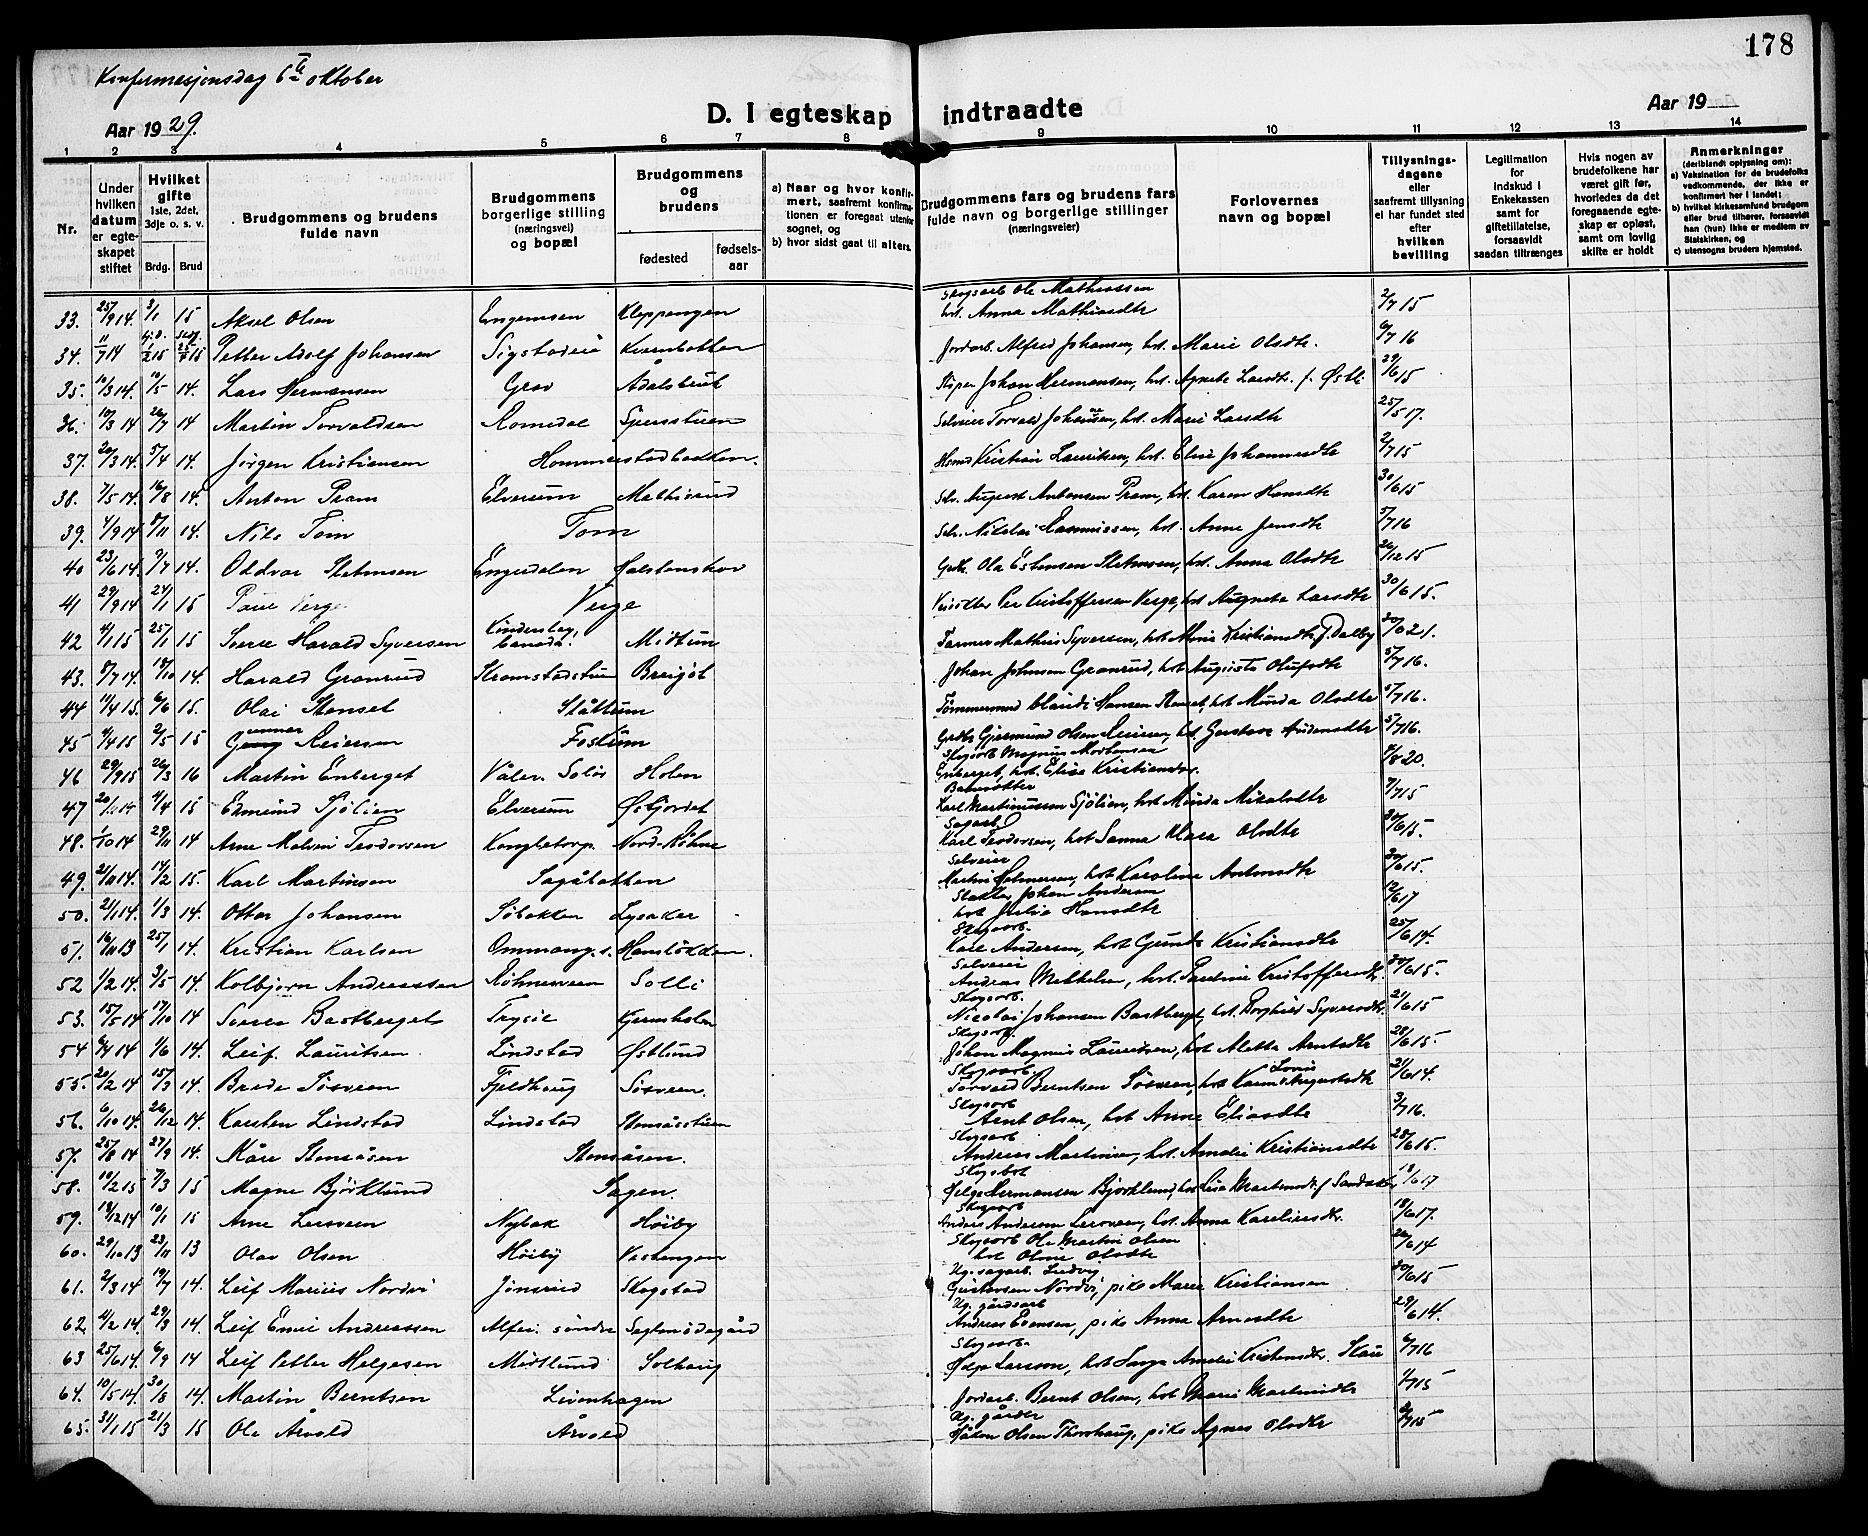 178
Konfirmasjonsdag 6te oktober
Aar 1929.
D. I egteskap indtraadte
Aar 19
1 2 3 4 5 6 7 8 9 10 11 12 13 14
Nr.
Under hvilken datum er egteskapet stiftet
Hvilket gifte 1ste, 2det, 3dje o. s. v.
Brdg. Brud
Brudgommens og brudens fulde navn
Brudgommens borgerlige stilling (næringsvei) og bopæl
Brudgommens og brudens
fødested fødselsaar
a) Naar og hvor konfirmert, saafremt konfirmationen er foregaat utenfor sognet, og
b) hvor sidst gaat til alters.
Brudgommens fars og brudens fars fulde navn og borgerlige stillinger (næringsveier)
Forlovernes navn og bopæl
Tillysningsdagene eller saafremt tillysning ei har fundet sted efter hvilken bevilling
Legitimation for indskud i Enkekassen samt for giftetillatelse, forsaavidt saadan tiltrænges
Hvis nogen av brudefolkene har været gift før, hvorledes da det foregaaende egteskap er opløst, samt om lovlig skifte er holdt
Anmerkninger (deriblandt oplysning om):
a) Vaksination for de brudefolks vedkommende, der ikke er konfirmert her i landet;
b) hvilket kirkesamfund brudgom eller brud tilhører, forsaavidt han (hun) ikke er medlem av Statskirken, og
c) utensogns bruders hjemsted.
33. 25/9 14. 3/1 15 Aksel Olsen Engemoen Kleppengen Skogsarb. Ole Mathiassen hst. Anna Mathiasdtr 2/7 15
34. 11/7 14 Petter Adolf Johansen Kvernbakken Jordarb. Alfred Johansen, hst. Marie Olsdtr. 6/7 16
35. 10/3 14. 10/5 14. Lars Hermansen Grav Ådalsbruk Johan Hermansen, hst. Agnete Larsdtr f. Østli 29/6 15
36. 10/3 14 26/7 14 Martin Torvaldsen Romedal Spersstuen Selveier Torvald Johansen, hst. Marie Larsdtr 25/5 17.
37. 20/3 14. 5/4 14. Jørgen Kristiansen Hommerstadbakken. Kristian Lauritsen, hst. Elise Johannesdtr 2/7 15
38. 7/5 14. 16/8 14. Anton Pram Elverum Mathisrud Selv. August Antonsen Pram, hst. Karen Hansdtr 30/6 15
39. 4/9 14. 8/11 14. Nils Tom Tom Selv. Nikolai Rasmussen, hst. Anne Jensdtr 5/7 16
40 23/6 14. 9/7 14. Oddvar Stetnsen Engerdalen Holstenskov Grdbr. Ola Estensen Stetnsen, hst. Anna Olsdtr 26/12 15
41 29/9 14 24/1 15 Paul Verge Verge Per Kristoffersen Verge, hst. Augneta Larsdtr 30/6 15.
42 4/1 15 25/1 15 Sverre Harald Syversen Kindersley, Canada. Midtun Farmer Mathias Syversen, hst. Marie Kristiansdtr f. Dalby
43. 8/7 14. 18/10 14. Harald Granrud Kromstadstuen Breigut Johan Johnsen Granrud, hst. Augusta Olufsdtr 5/7 16.
44 11/4 15. 6/6 15. Olai Stenset Ståltum Tømmermand Hansen Stenset, hst. Minda Olsdtr 5/7 16.
45 4/4 15 2/5 15 Gunnar Reiersen Foskum Grdbr Gjermund Olsen Reiersen, hst. Gustava Audensdtr 5/7 16.
46 29/9 15 26/3 16 Martin Enberget Våler. Solør Holen Skogarb Magnus Mortensen Enberget, hst. Elise Kristiansdr. 7/8 20.
47 4/4 15 Edmund Sjølien Elverum Østjordet Banevokter Karl Martinussen Sjølien, hst Minda Mikalsdtr 7/7 15
48. 1/10 14 29/11 14 Arne Malvin Teodorsen Kongletorp. Nord-Køhne Sagarb. Karl Teodorsen, hst Sanna Klara Olsdtr 30/6 15.
49. 21/11 14. 14/2 15. Karl Martinsen Sagåbakken Selveier Martin Helmersen, hst Karoline Antonsdtr 30/6 15.
50. 21/1 14. 1/3 14. Ottar Johansen Søbakken Lysaker Slakter Johan Andersen hst Julie Hansdtr 12/6 17
51. 16/11 13 25/1 14. Kristian Karlsen Ommang s. Hansløkken. Skogarb. Karl Andersen, hst Gunda Kristiansdtr 25/6 14.
52 1/2 14 3/5 14. Kolbjørn Andreassen Køhnesveen Solli Selveier Andreas Mikkelsen, hst. Pauline Kristoffersdtr. 30/6 15.
53. 15/5 14 17/10 14 Sverre Bastberget Trysil Kjernsholen Skogarb. Nicolai Johansen Bastberget, hst. Borghild Syversdtr. 21/6 15
54 6/4 14 1/6 14. Leif. Lauritsen. Lindstad Østlund Skogsarb. Johan Magnus Lauritsen, hst Aletta Arntsdtr 28/6 15.
55. 20/2 14 15/3 14. Brede Søsveen Fjeldhaug Søsveen. Skogsarb Torvald Berntsen Søsveen, hst Karen Lovise Augustsdtr 21/6 14.
56. 6/10 14. 26/12 14. Karsten Lindstad Lindstad Stensåsstuen Skogsarb Arnt Olsen, hst Anne Eliasdtr 3/7 16.
57. 25/8 14 27/9 14. Kåre Stensåsen Stensåsen. Skogsarb Andreas Martinsen, hst. Amalie Kristiansdtr 28/6 15.
58. 10/2 15 7/3 15 Magne Bjørklund Sagen. Skogsbst Helge Hermansen Bjørklund, hst Lisa Martinsdtr. f Sandaker, 19/6 17
59. 18/12 14 10/1 15 Arne Lersveen Nybak Høiby Skogsarb Anders Andersen Lersveen, hst. Anna Karelivsdtr. 18/6 17.
60. 29/10 13 23/11 13 Olav Olsen Høiby Vestengen Skogsarb Ole Martin Olsen hst Oline Olsdtr 26/6 14
61. 2/3 14 19/7 14. Leif Marius Nordvi Jønsrud Skogstad Ug. sagarb. Ludvig Gustavsen Nordvi, pike Marie Kristiansen 30/6 15
62. 4/2 14. 29/3 14. Leif Emil Andreassen Alfei. søndre Seglmødegård Ug. gårdsarb Andreas Evensen, pike Anna Arnesdtr 29/6 14.
63 25/6 14. 6/9 14 Leif Petter Helgesen Midtlund Solhaug Skogsarb. Helge Larsson, hst Inga Amalie Kristensdtr. 6/7 16
64. 10/5 14. 30/8 14. Martin Berntsen Leirenhagen Jordarb. Bernt Olsen, hst Marie Martinsdtr 1/7 15
65. 31/1 15 21/3 15 Ole Årvold Årvold Ug. gårdbr Håkon Olsen Thorshaug, pike Agnes Olsdtr